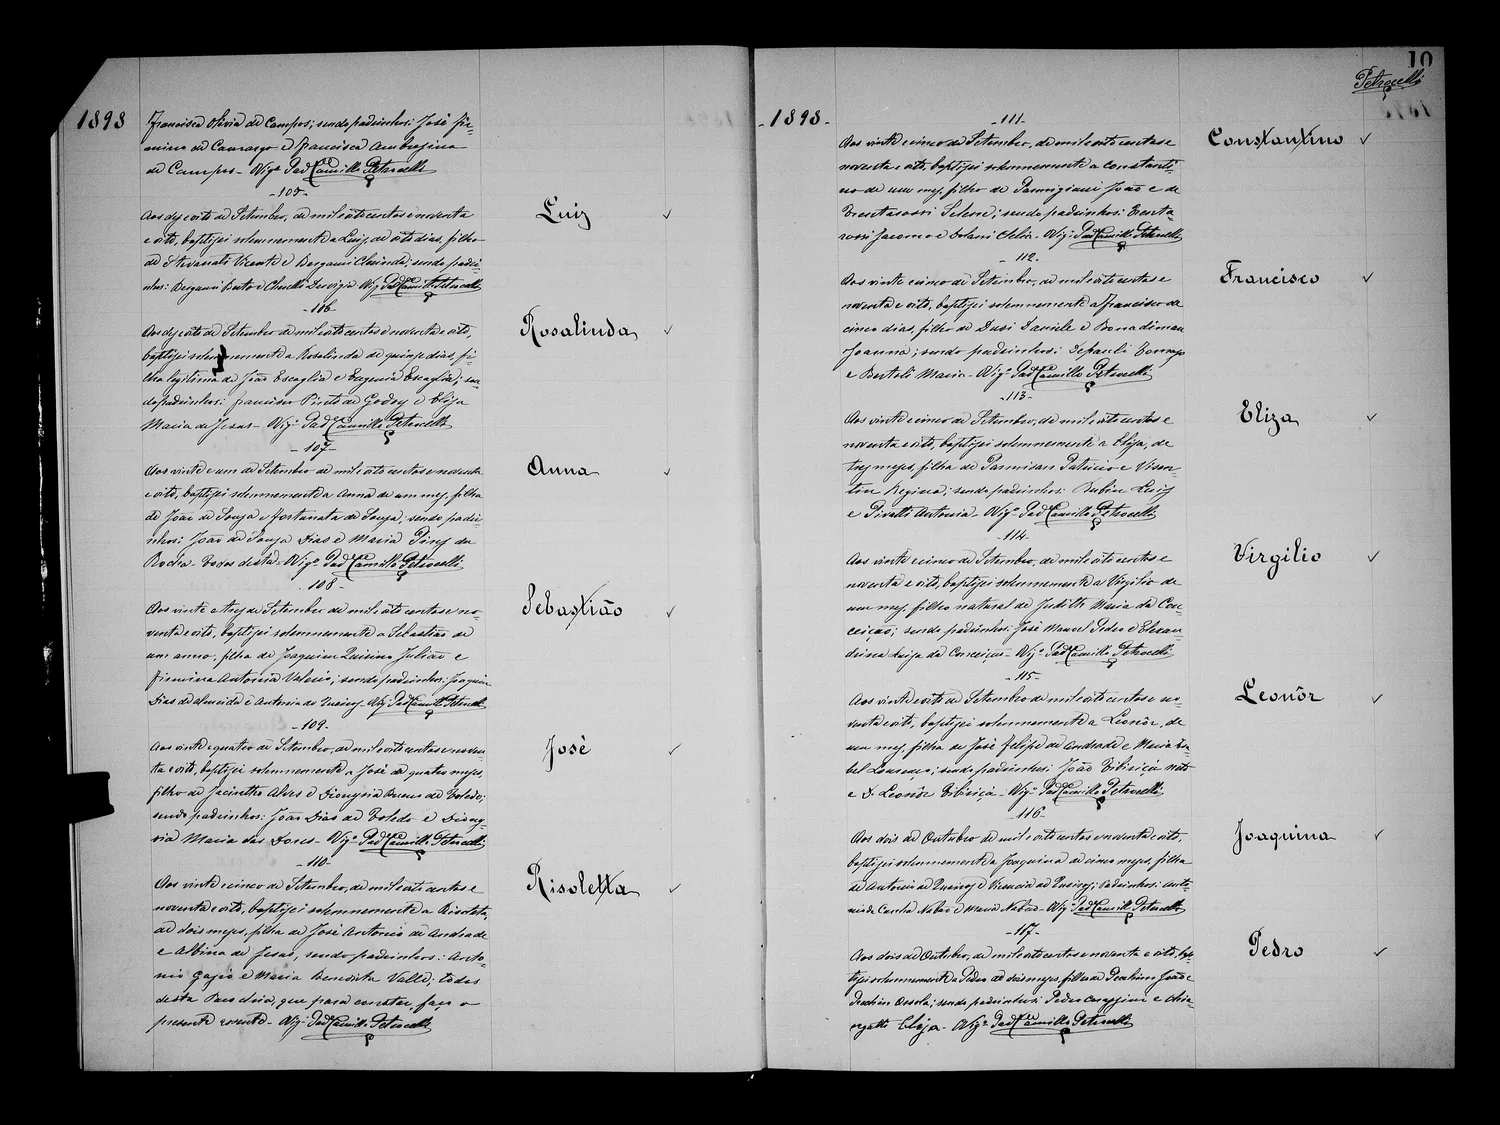 1898
Francisca Olivia de Campos; sendo padrinhos: José Fir-
mino de Camargo e Francisca Ambrosina
de Campos - Vigº Padre Camillo Petrocelli
- 105 -
Luiz
Aos dezoito de Setembro, de mil oito centos e noventa
e oito, baptizei solemnemente a Luiz de oito dias, filho
de Vicente e Bergami Clorinda; sendo padri-
nhos: Bergami Vigº Padre Camillo Petrocelli
- 106 -
Rosalinda
Aos dezoito de Setembro de mil oito centos e noventa e oito,
baptizei solemnemente a Rosalinda de quinze dias, fi-
lha legitima de João Escaglia e Eugenia Escaglia; sen-
do padrinhos: Francisco Pinto de Godoy e Eliza
Maria de Jesus - Vigº Padre Camillo Petrocelli
- 107 -
Anna
Aos vinte e um de Setembro de mil oito centos e noventa
e oito, baptizei solemnemente a Anna de um mez, filha
de João de Souza e Fortunata de Souza, sendo padri-
nhos: João de Souza Dias e Maria Pinz da
Rocha todos desta - Vigº Padre Camillo Petrocelli
- 108 -
Sebastião
Aos vinte e trez de Setembro de mil oito centos e no-
venta e oito, baptizei solemnemente a Sebastião de
um anno, filho de Joaquim Quirino Julião e
Firmina Antonia Valerio; sendo padrinhos: Joaquim
Dias de Almeida e Antonia de Queiroz - Vigº Padre Camillo Petrocelli
- 109 -
José
Aos vinte e quatro de Setembro, de mil oito centos e noven-
ta e oito, baptizei solemnemente a José de quatro mezes,
filho de Jacintho Alves e Dionyzia Bueno de Toledo;
sendo padrinhos: João Dias de Toledo e Diony-
sia Maria das Dores - Vigº Padre Camillo Petrocelli
- 110 -
Risoletta
Aos vinte e cinco de Setembro, de mil oito centos e
noventa e oito, baptizei solemnemente a Risoleta,
de dois mezes, filha de José Antonio de Andrade
e Albina de Jesus, sendo padrinhos: Anto-
nio e Maria Benedita Valle; todos
desta Parochia, que para constar faço o
presente assento - Vigº Padre Camillo Petrocelli
10
Petrocelli
- 1898 -
- 111 -
Constantino
Aos vinte e cinco de Setembro, de mil oito centos e
noventa e oito, baptizei solemnemente a Constanti-
no de um mez, filho de Parmigiani João e de
sendo padrinhos:
Jacomo e Solani Clelia - Vigº Padre Camillo Petrocelli
- 112 -
Francisco
Aos vinte e cinco de Setembro, de mil oito centos e
noventa e oito, baptizei solemnemente a Francisco de
cinco dias, filho de Dusi Daniele e Bonadiman
Joanna; sendo padrinhos: Depauli
e Bertoli Maria - Vigº Padre Camillo Petrocelli
- 113 -
Eliza
Aos vinte e cinco de Setembro, de mil oito centos e
noventa e oito, baptizei solemnemente a Eliza, de
trez mezes, filha de Parmisan Patricio e Visen-
tin Regina; sendo padrinhos: Rubin Luiz
e Pivatti Antonia - Vigº Padre Camillo Petrocelli
- 114 -
Virgilio
Aos vinte e cinco de Setembro, de mil oito centos e
noventa e oito, baptizei solemnemente a Virgilio de
um mez, filho natural de Judith Maria da Con-
ceição; sendo padrinhos: José Manoel Pedro e Elexan-
drina Luiza da Conceição - Vigº Padre Camillo Petrocelli
- 115 -
Leonôr
Aos vinte e oito de Setembro de mil oito centos e no-
venta e oito, baptizei solemnemente a Leonôr, de
um mez, filha de José Felipe de Andrade e Maria Isa-
bel Lourenço; sendo padrinhos: João Tibiriçá Neto
e D. Leonôr Tibiriçá - Vigº Padre Camillo Petrocelli
- 116 -
Joaquina
Aos dois de Outubro de mil oito centos e noventa e oito,
baptizei solemnemente a Joaquina de cinco mezes, filha
de Antonio de Queiroz e Vicencia de Queiroz; padrinhos: Anto-
nio da Cunha Nobre e Maria Nobre - Vigº Padre Camillo Petrocelli
- 117 -
Pedro
Aos dois de Outubro, de mil oito centos e noventa e oito, bap-
tizei solemnemente a Pedro de dois mezes, filho de João e
sendo padrinhos: Pedro e
Eliza - Vigº Padre Camillo Petrocelli